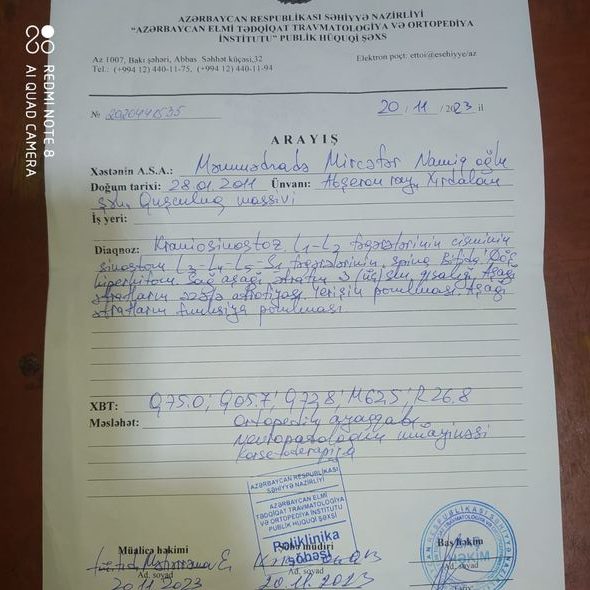 AZƏRBAYCAN RESPUBLİKASI SƏHİYYƏ NAZİRLİYİ
“AZƏRBAYCAN ELMİ TƏDQİQAT TRAVMATOLOGİYA VƏ ORTOPEDİYA
İNSTİTUTU” PUBLİK HÜQUQİ ŞƏXS
Az 1007, Bakı şəhəri, Abbas Səhhət küçəsi,32
Elektron poçt: ettoi@esehiyye/az
Tel.: (+994 12) 440-11-75, (+994 12) 440-11-94
№ 2020441535
20 / 11 / 2023 il
ARAYIŞ
Xəstənin A.S.A.: Məmmədzadə Mircəfər Namiq oğlu
Doğum tarixi: 28.01.2011 Ünvanı: Abşeron ray, Xırdalan
şəh, Quşçuluq massivi
İş yeri:
Diaqnoz: Kraniosinostoz L1-L2 fəqərələrinin cisminin
sinostozu L3-L4-L5-S1 fəqərələrinin, spina Bifida.
Sağ aşağı ətrafın 3 (üç) sm. qısalığı. Aşağı
ətrafların əzələ atrofiyası. Yerişin pozulması. Aşağı
ətrafların funksiya pozulması
XBT: Q75.0; Q05.7; Q72.8; M62.5; R26.8
Məsləhət: Ortopedik ayaqqabı
Nevropatoloqun müayinəsi
Korsetoterapiya
AZƏRBAYCAN RESPUBLİKASI
SƏHİYYƏ NAZİRLİYİ
AZƏRBAYCAN ELMİ
TƏDQİQAT TRAVMATOLOGİYA
VƏ ORTOPEDİYA İNSTİTUTU
PUBLİK HÜQUQİ ŞƏXSİ
Poliklinika
şöbəsi
Müalicə həkimi
Şöbə müdiri
Baş həkim
HƏKİM
Ad, soyad
Ad, soyad
20.11.2023
20.11.2023
REDMI NOTE 8
AI QUAD CAMERA